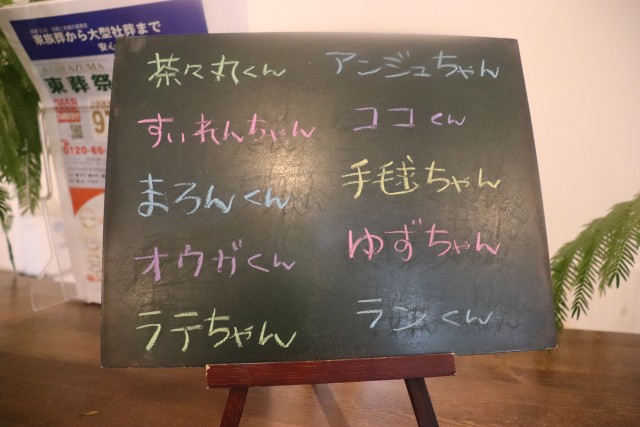 家族葬から大型社葬まで
安心
AZUMA
東葬祭
365日
0120-66
茶々丸くん
すいれんちゃん
まろんくん
オウガくん
ラテちゃん
アンジュちゃん
ココくん
手毬ちゃん
ゆずちゃん
ランくん